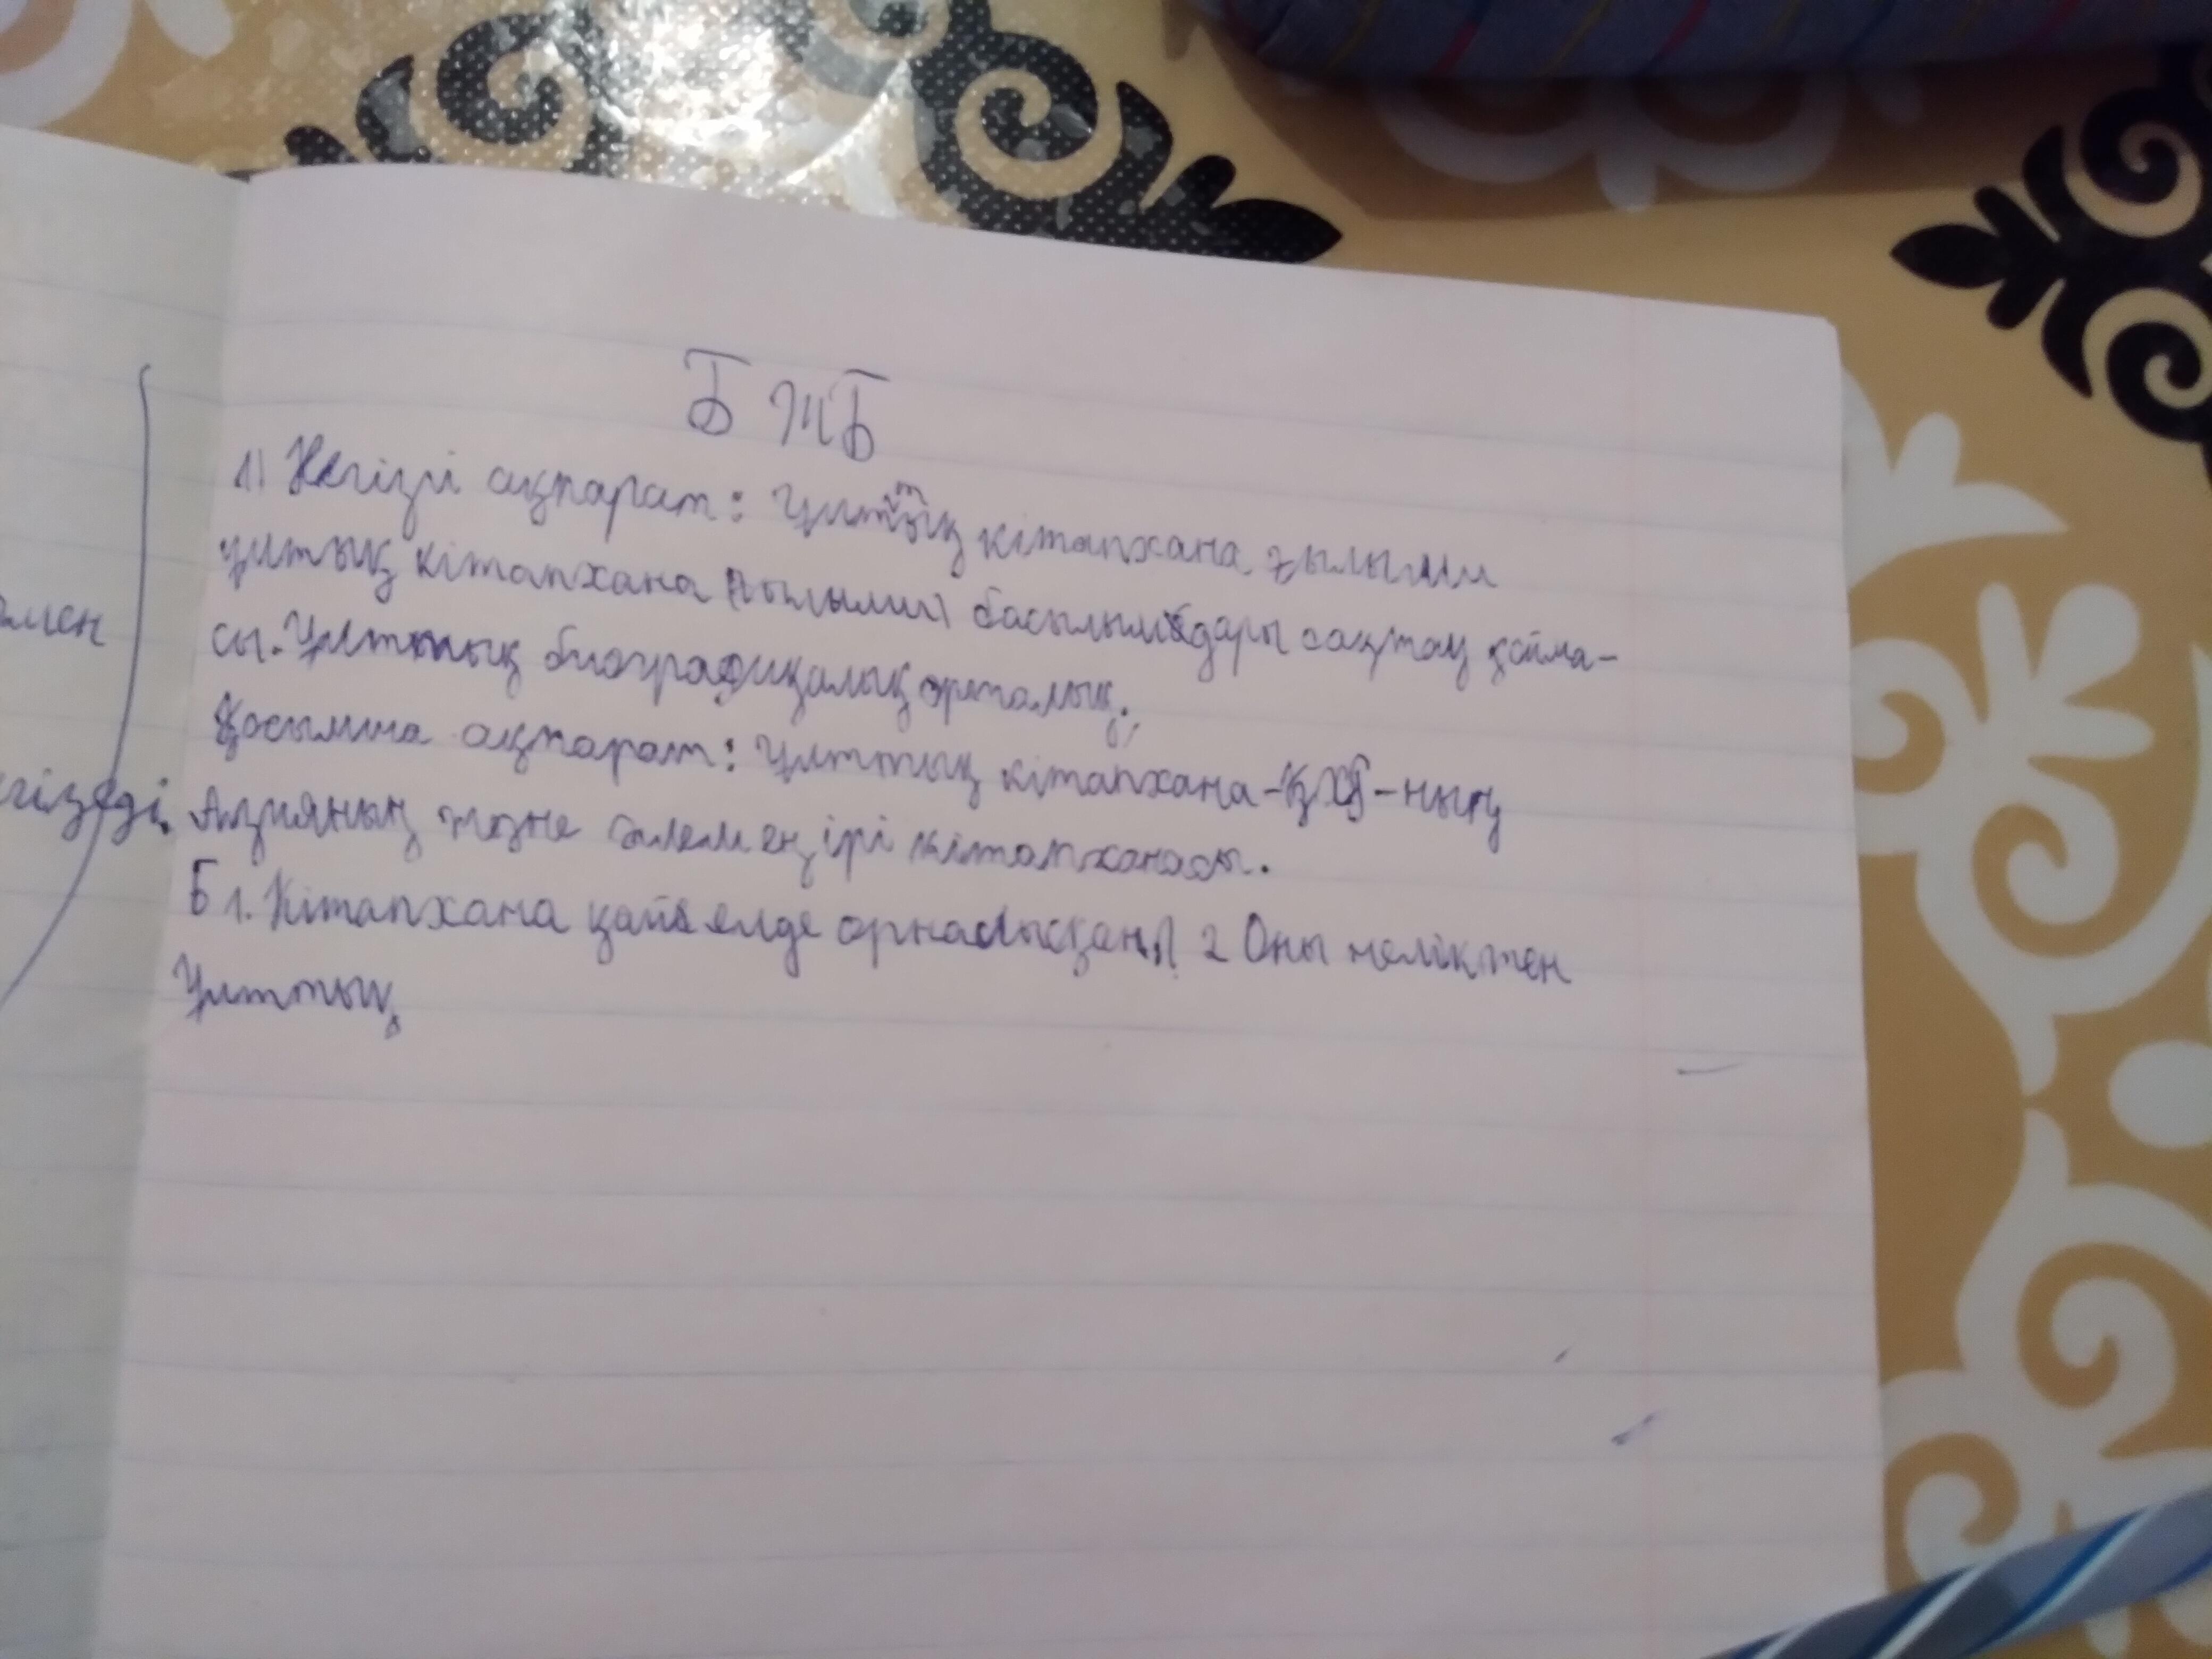 БЖБ
1) Негізгі ақпарат: Ұлттық кітапхана ғылыми
ұлтық кітапхана ғылыми басылымдары сақтау қойма-
сы. Ұлттық биографиқалық орталық.
Қосымша ақпарат: Ұлттық кітапхана-ҚХР-ның
Азияның және әлем ең ірі кітапханасы.
Б 1. Кітапхана қай елде орналысқан? 2 Оны неліктен
Ұлттық
мен
гізеді.